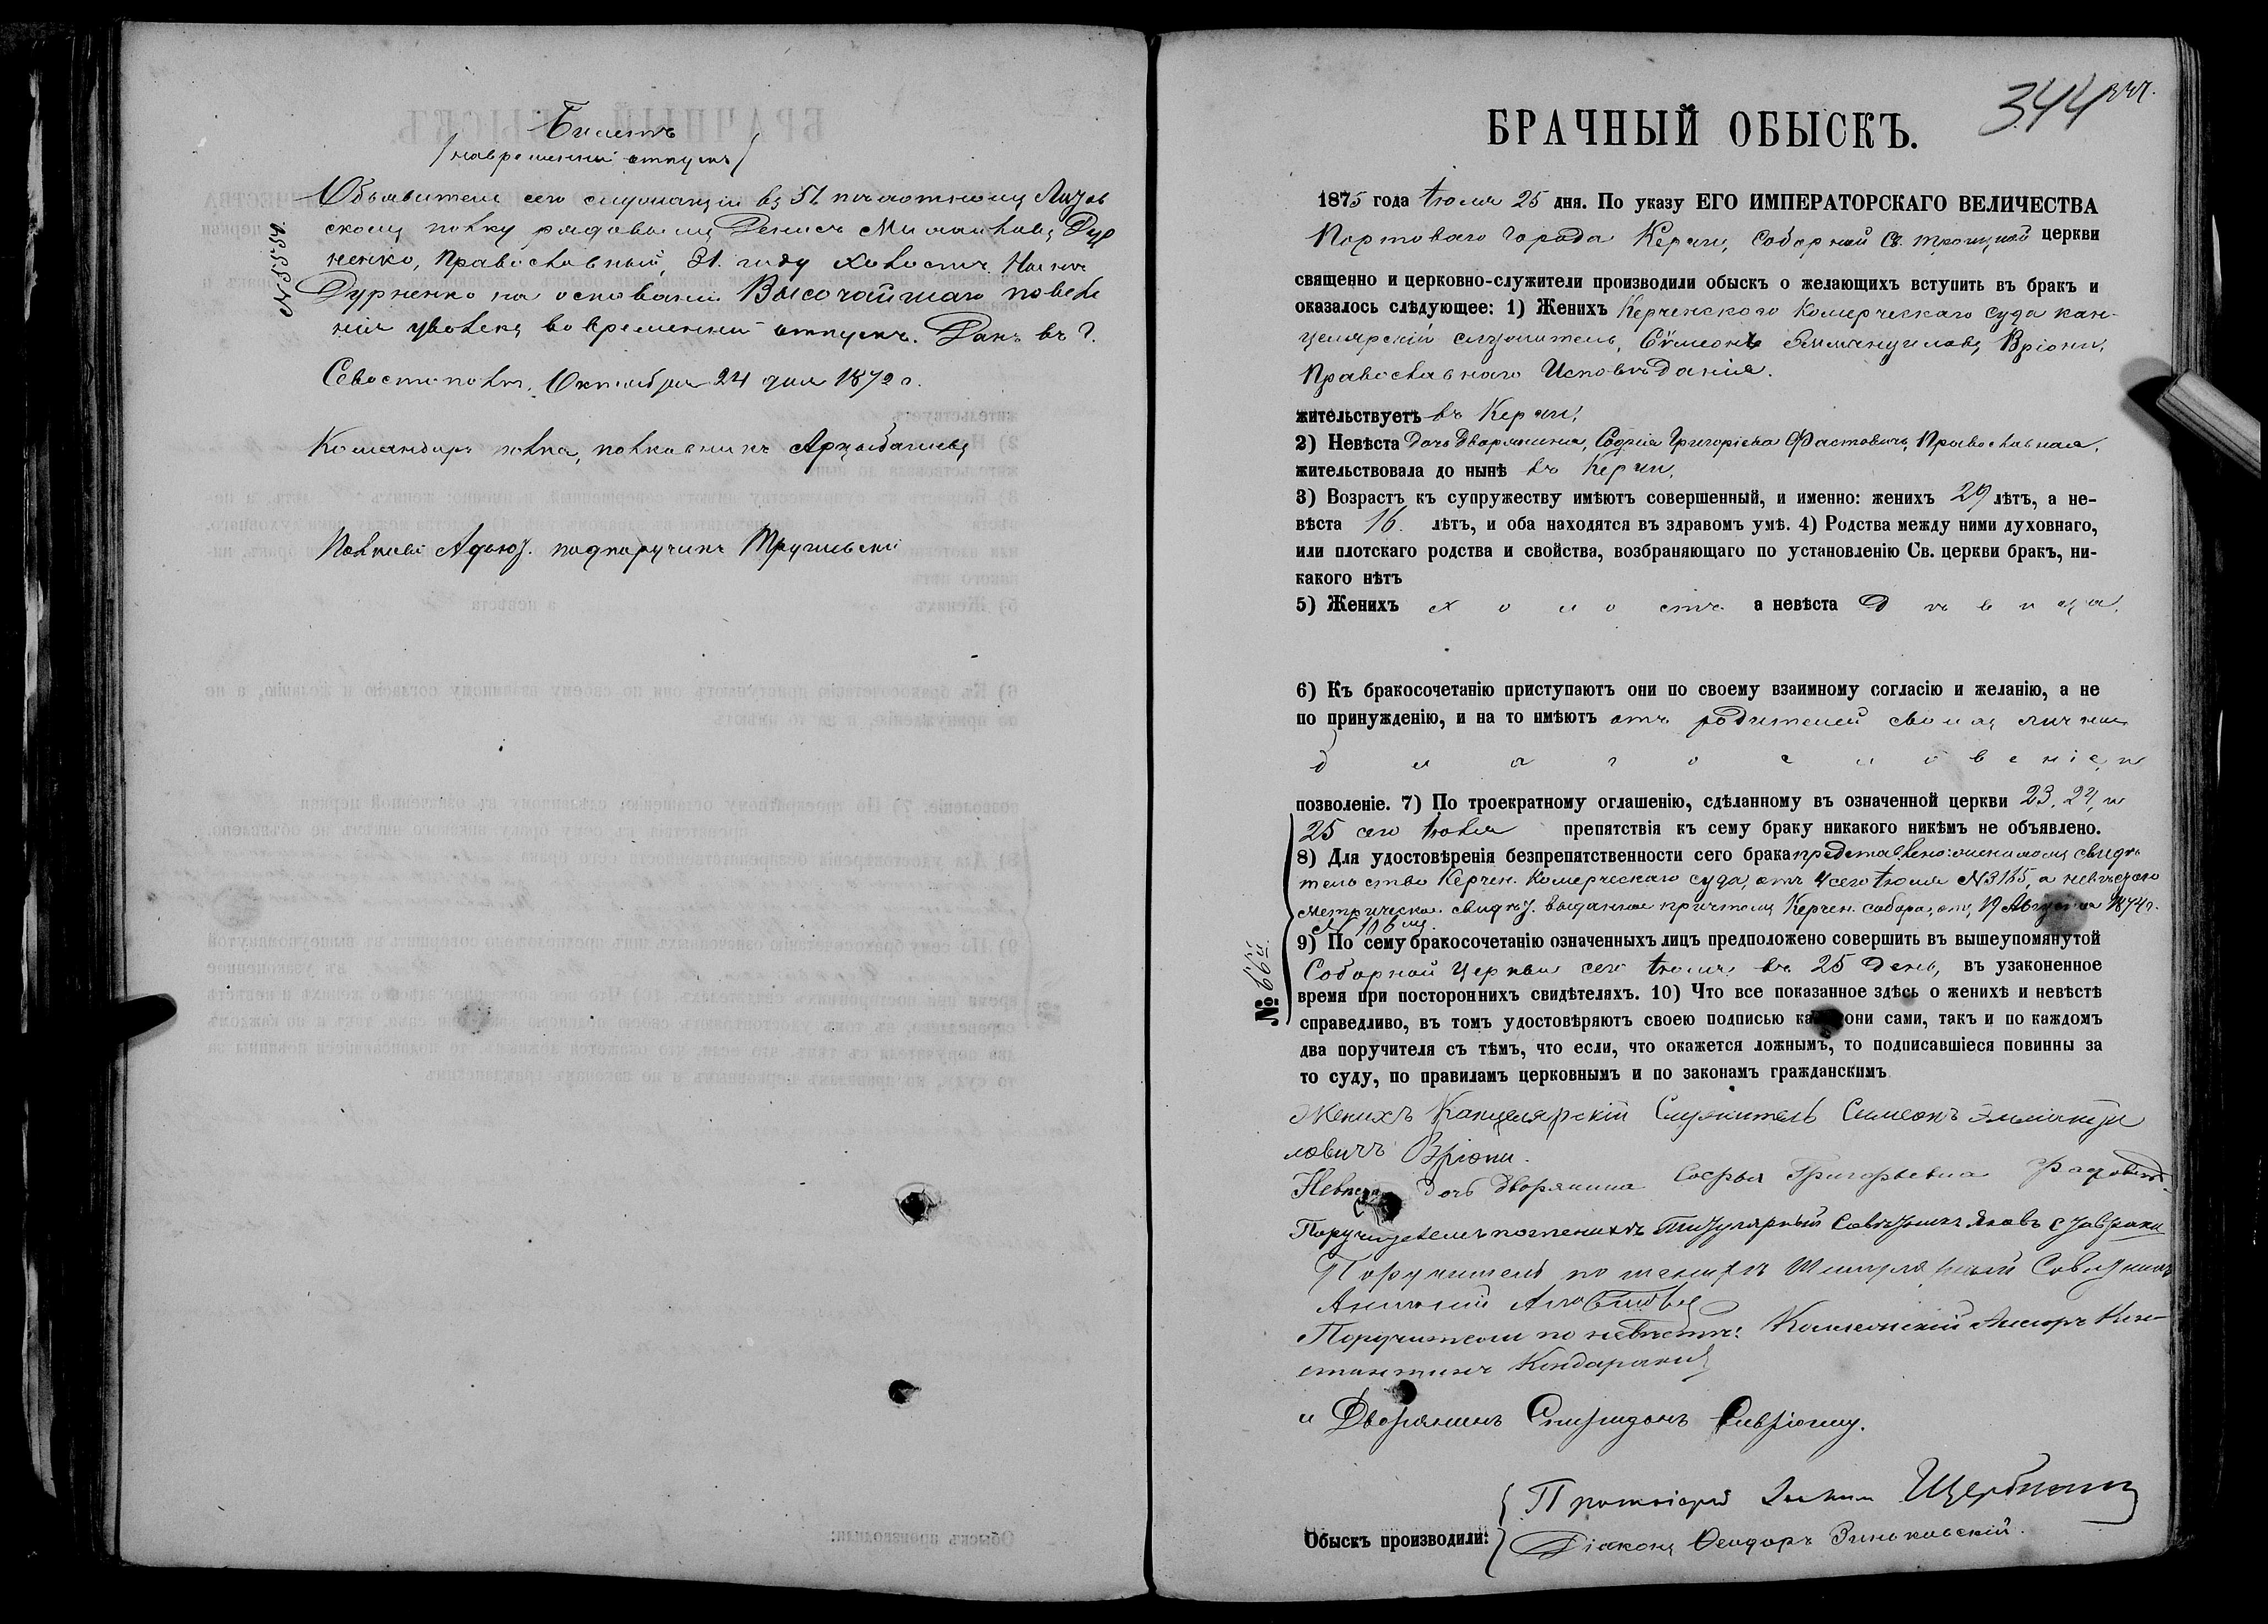 Билетъ
/на временный отпускъ/
Объявителю сего служащій въ 51 пѣхотному Литов
скому полку рядовому Денисъ Михайловъ Дур
ненко, Православный, 31. году холостъ.
Дурненко на основаніи Высочайшаго повеле
нія уволенъ во временный отпускъ. Данъ въ г.
Севастополь, Октября 24 дня 1872 г.
№ 5352.
Командиръ полка, полковникъ Арцыбашевъ
Полковой Адъют. подпоручикъ
344
БРАЧНЫЙ ОБЫСКЪ.
1875 года Іюля 25 дня. По указу ЕГО ИМПЕРАТОРСКАГО ВЕЛИЧЕСТВА
Портоваго города Керчи, Соборной Св. Троицкой церкви
священно и церковно-служители производили обыскъ о желающихъ вступить въ бракъ и
оказалось слѣдующее: 1) Женихъ Керченскаго Комерческаго суда кан-
целярскій служитель, Симеонъ Эммануиловъ Вріони,
Православнаго Исповѣданія.
жительствуетъ въ Керчи.
2) Невѣста Дочь Дворянина, Софія Григоріева Фастовичъ, Православная.
жительствовала до нынѣ въ Керчи.
3) Возрастъ къ супружеству имѣютъ совершенный, и именно: женихъ 29 лѣтъ, а не-
вѣста 16. лѣтъ, и оба находятся въ здравомъ умѣ. 4) Родства между ними духовнаго,
или плотскаго родства и свойства, возбраняющаго по установленію Св. церкви бракъ, ни-
какого нѣтъ
5) Женихъ холостъ а невѣста Дѣвица.
6) Къ бракосочетанію приступаютъ они по своему взаимному согласію и желанію, а не
по принужденію, и на то имѣютъ отъ родителей своихъ личное
благословеніе и
позволеніе. 7) По троекратному оглашенію, сдѣланному въ означенной церкви 23, 24, и
25 сего Іюля препятствія къ сему браку никакого никѣмъ не объявлено.
8) Для удостовѣренія безпрепятственности сего брака представлено: женихомъ свидѣ
тельство Керчен. Комерческаго суда, отъ 4 сего Іюля № 3165, а невѣстою
метрическое свидѣт. выданное причтомъ Керчен. собора, отъ 19 Августа 1874 г.
№ 106
9) По сему бракосочетанію означенныхъ лицъ предположено совершить въ вышеупомянутой
Соборной Церкви сего Іюля въ 25 День, въ узаконенное
№ 66й.
время при постороннихъ свидѣтеляхъ. 10) Что все показанное здѣсь о женихѣ и невѣстѣ
справедливо, въ томъ удостовѣряютъ своею подписью какъ они сами, такъ и по каждомъ
два поручителя съ тѣмъ, что если, что окажется ложнымъ, то подписавшіеся повинны за
то суду, по правиламъ церковнымъ и по законамъ гражданскимъ
Женихъ Канцелярскій Служитель Симеонъ Эммануи
ловичъ Вріони.
Невѣста дочь дворянина Софья Григорьевна
Поручителемъ по женихѣ Титулярный Совѣтникъ Яковъ
Поручитель по женихѣ Титулярный Совѣтникъ
Поручители по невѣстѣ: Коллежскій Ассесоръ Кон-
стантинъ Кондараки
и Дворянинъ Спиридонъ
Протоіерей Щербинин
Обыскъ производили:
Діаконъ Ѳеодоръ Зиньковскій.